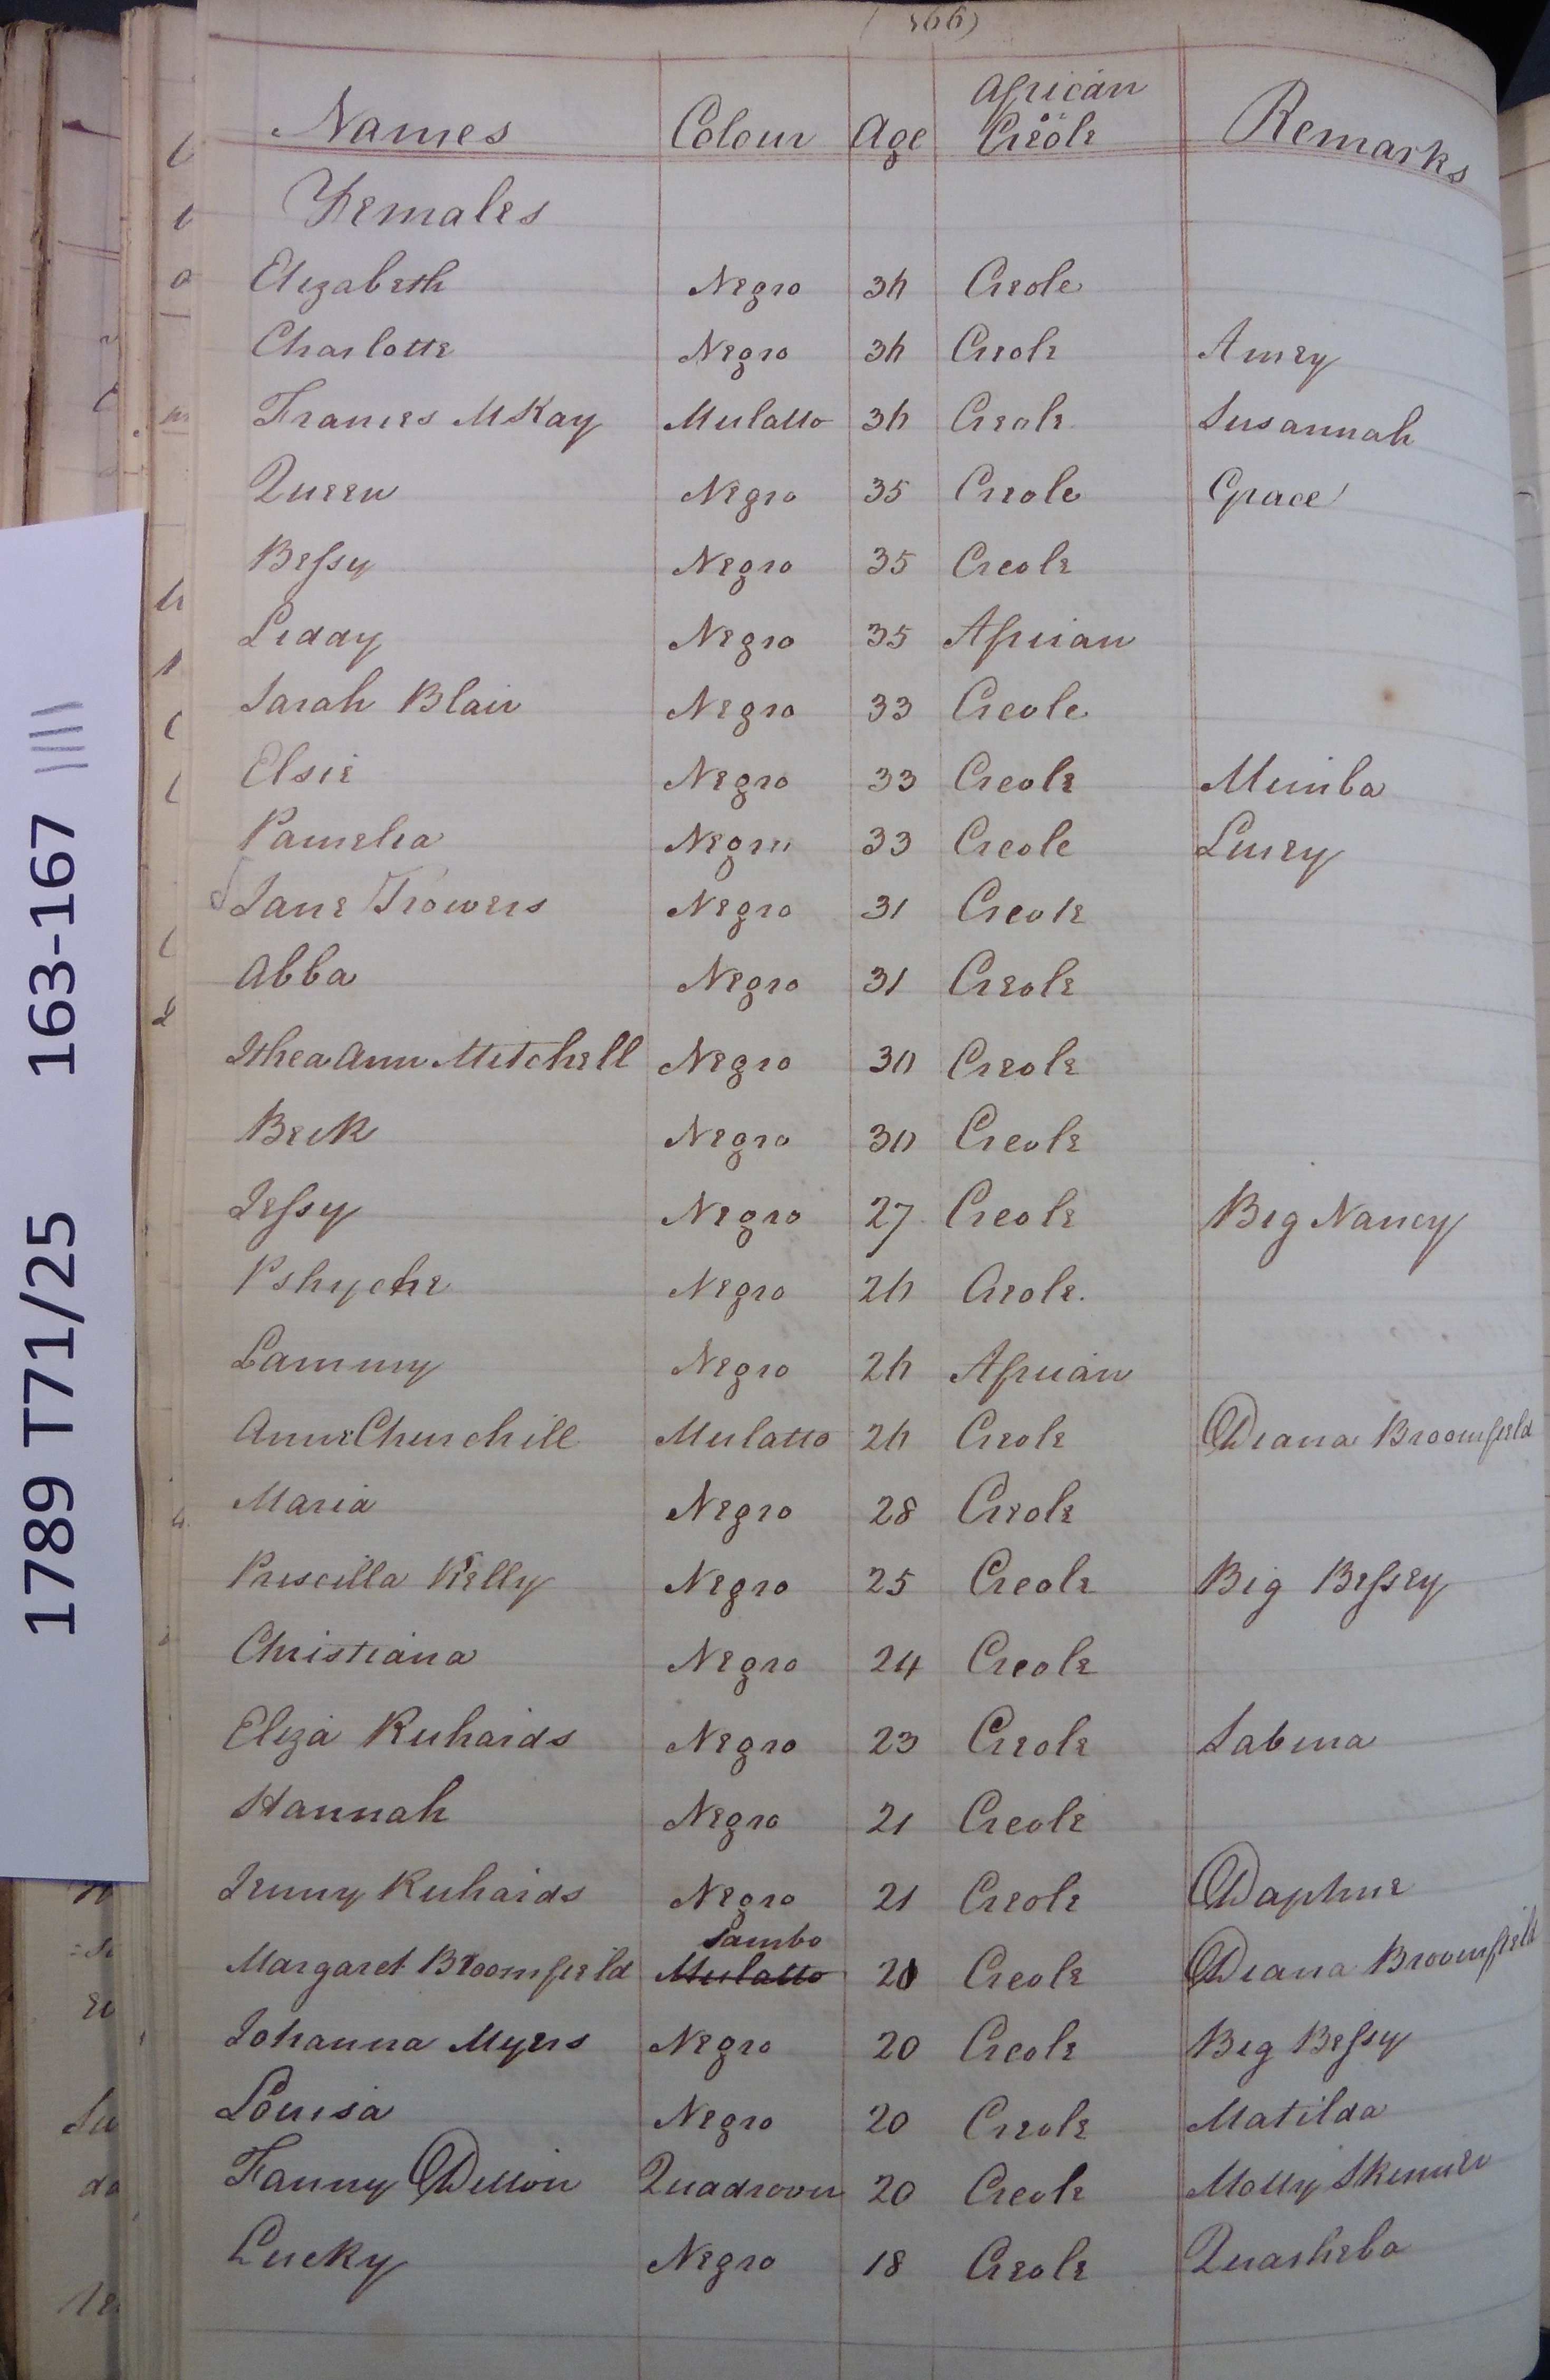 (166)
Names Colour Age African or Creole Remarks
Females
Elizabeth Negro 36 Creole
Charlotte Negro 36 Creole Amey
Frances McKay Mulatto 36 Creole Susannah
Queen Negro 35 Creole Grace
Bessy Negro 35 Creole
Lidday Negro 35 African
Sarah Blair Negro 33 Creole
Elsie Negro 33 Creole Mimba
Pamelia Negro 33 Creole Lucey
Jane Trowers Negro 31 Creole
Abba Negro 31 Creole
Ann Mitchell Negro 30 Creole
Beck Negro 30 Creole
Jessy Negro 27 Creole Big Nancy
Pshyche Negro 26 Creole
Lammy Negro 26 African
Anne Churchill Mulatto 26 Creole Diana Broomfield
Maria Negro 28 Creole
Priscilla Kelly Negro 25 Creole Big Bessey
Christiana Negro 24 Creole
Eliza Richards Negro 23 Creole Sabina
Hannah Negro 21 Creole
Jenny Richards Negro 21 Creole Daphne
Sambo
Margaret Broomfield Mulatto 20 Creole Diana Broomfield
Johanna Myers Negro 20 Creole Big Bessy
Louisa Negro 20 Creole Matilda
Fanny Quadroon 20 Creole Molly Skinner
Lucky Negro 18 Creole Quasheba
1789 T71/25 163-167